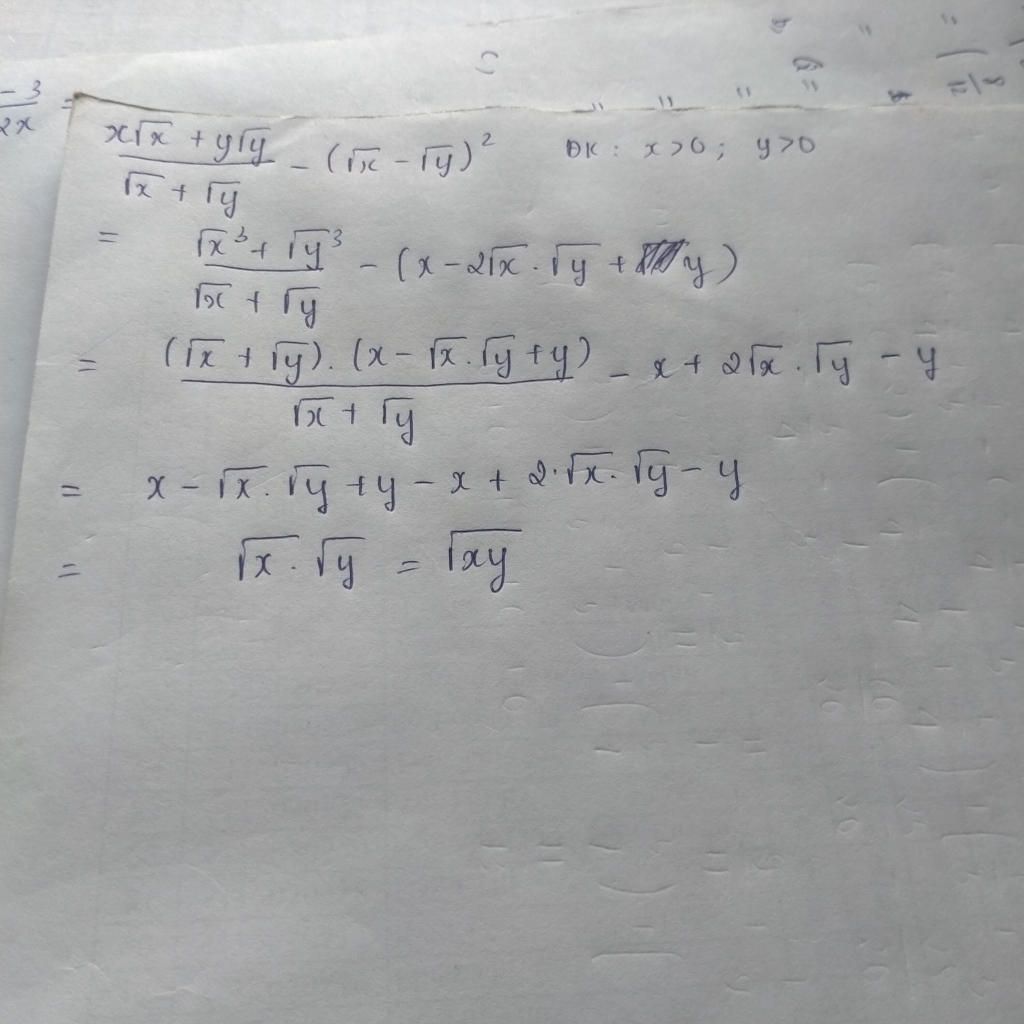 -3/2x =
(x√x + y√y)/(√x + √y) - (√x - √y)² ĐK: x>0; y>0
= (√x³ + √y³)/(√x + √y) - (x - 2√x . √y + y)
= ((√x + √y). (x - √x . √y + y))/(√x + √y) - x + 2√x . √y - y
= x - √x . √y + y - x + 2.√x . √y - y
= √x . √y = √xy